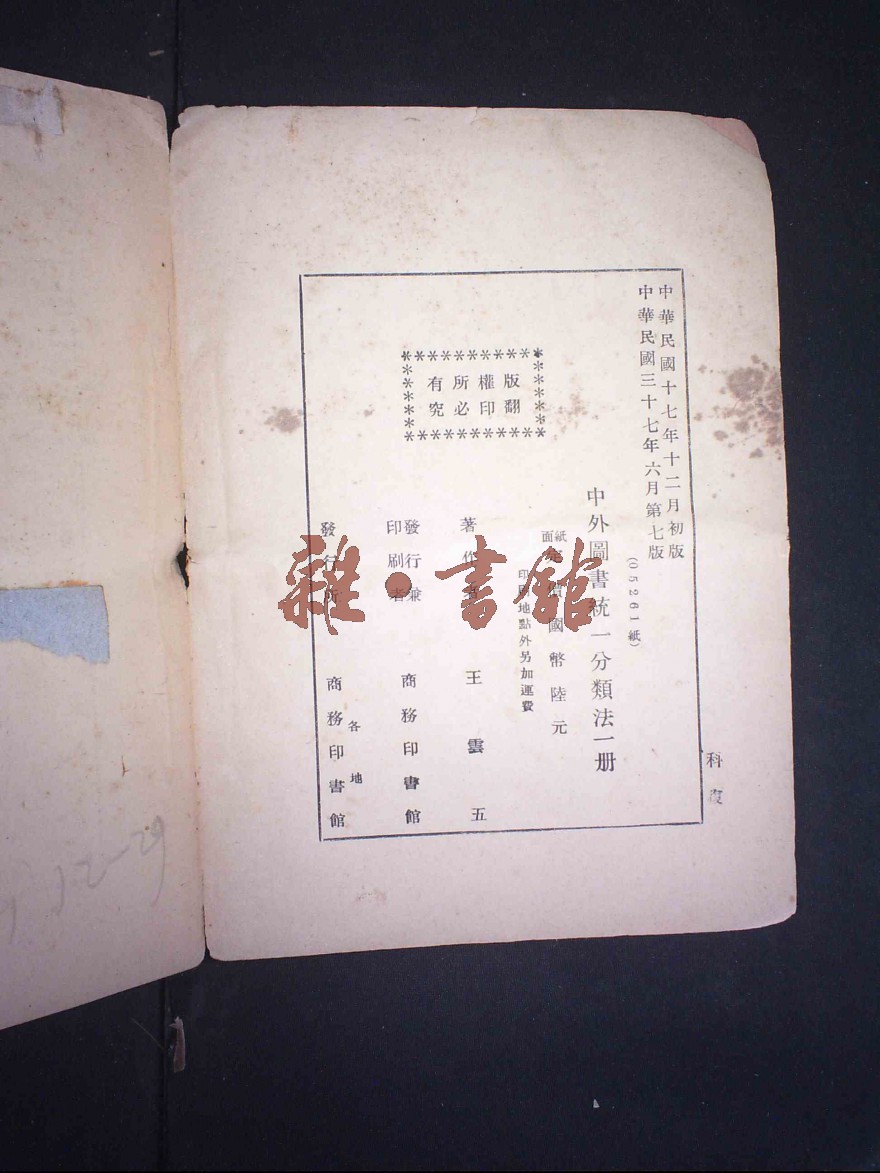 中華民國十七年十二月初版
中華民國三十七年六月第七版
(05261紙)
中外圖書統一分類法一册
紙面 定價國幣陸元
印刷地點外另加運費
版權所有
翻印必究
著作者 王雲五
發行兼印刷者 商務印書館
發行所 各地 商務印書館
科復
12-29
雜·書館